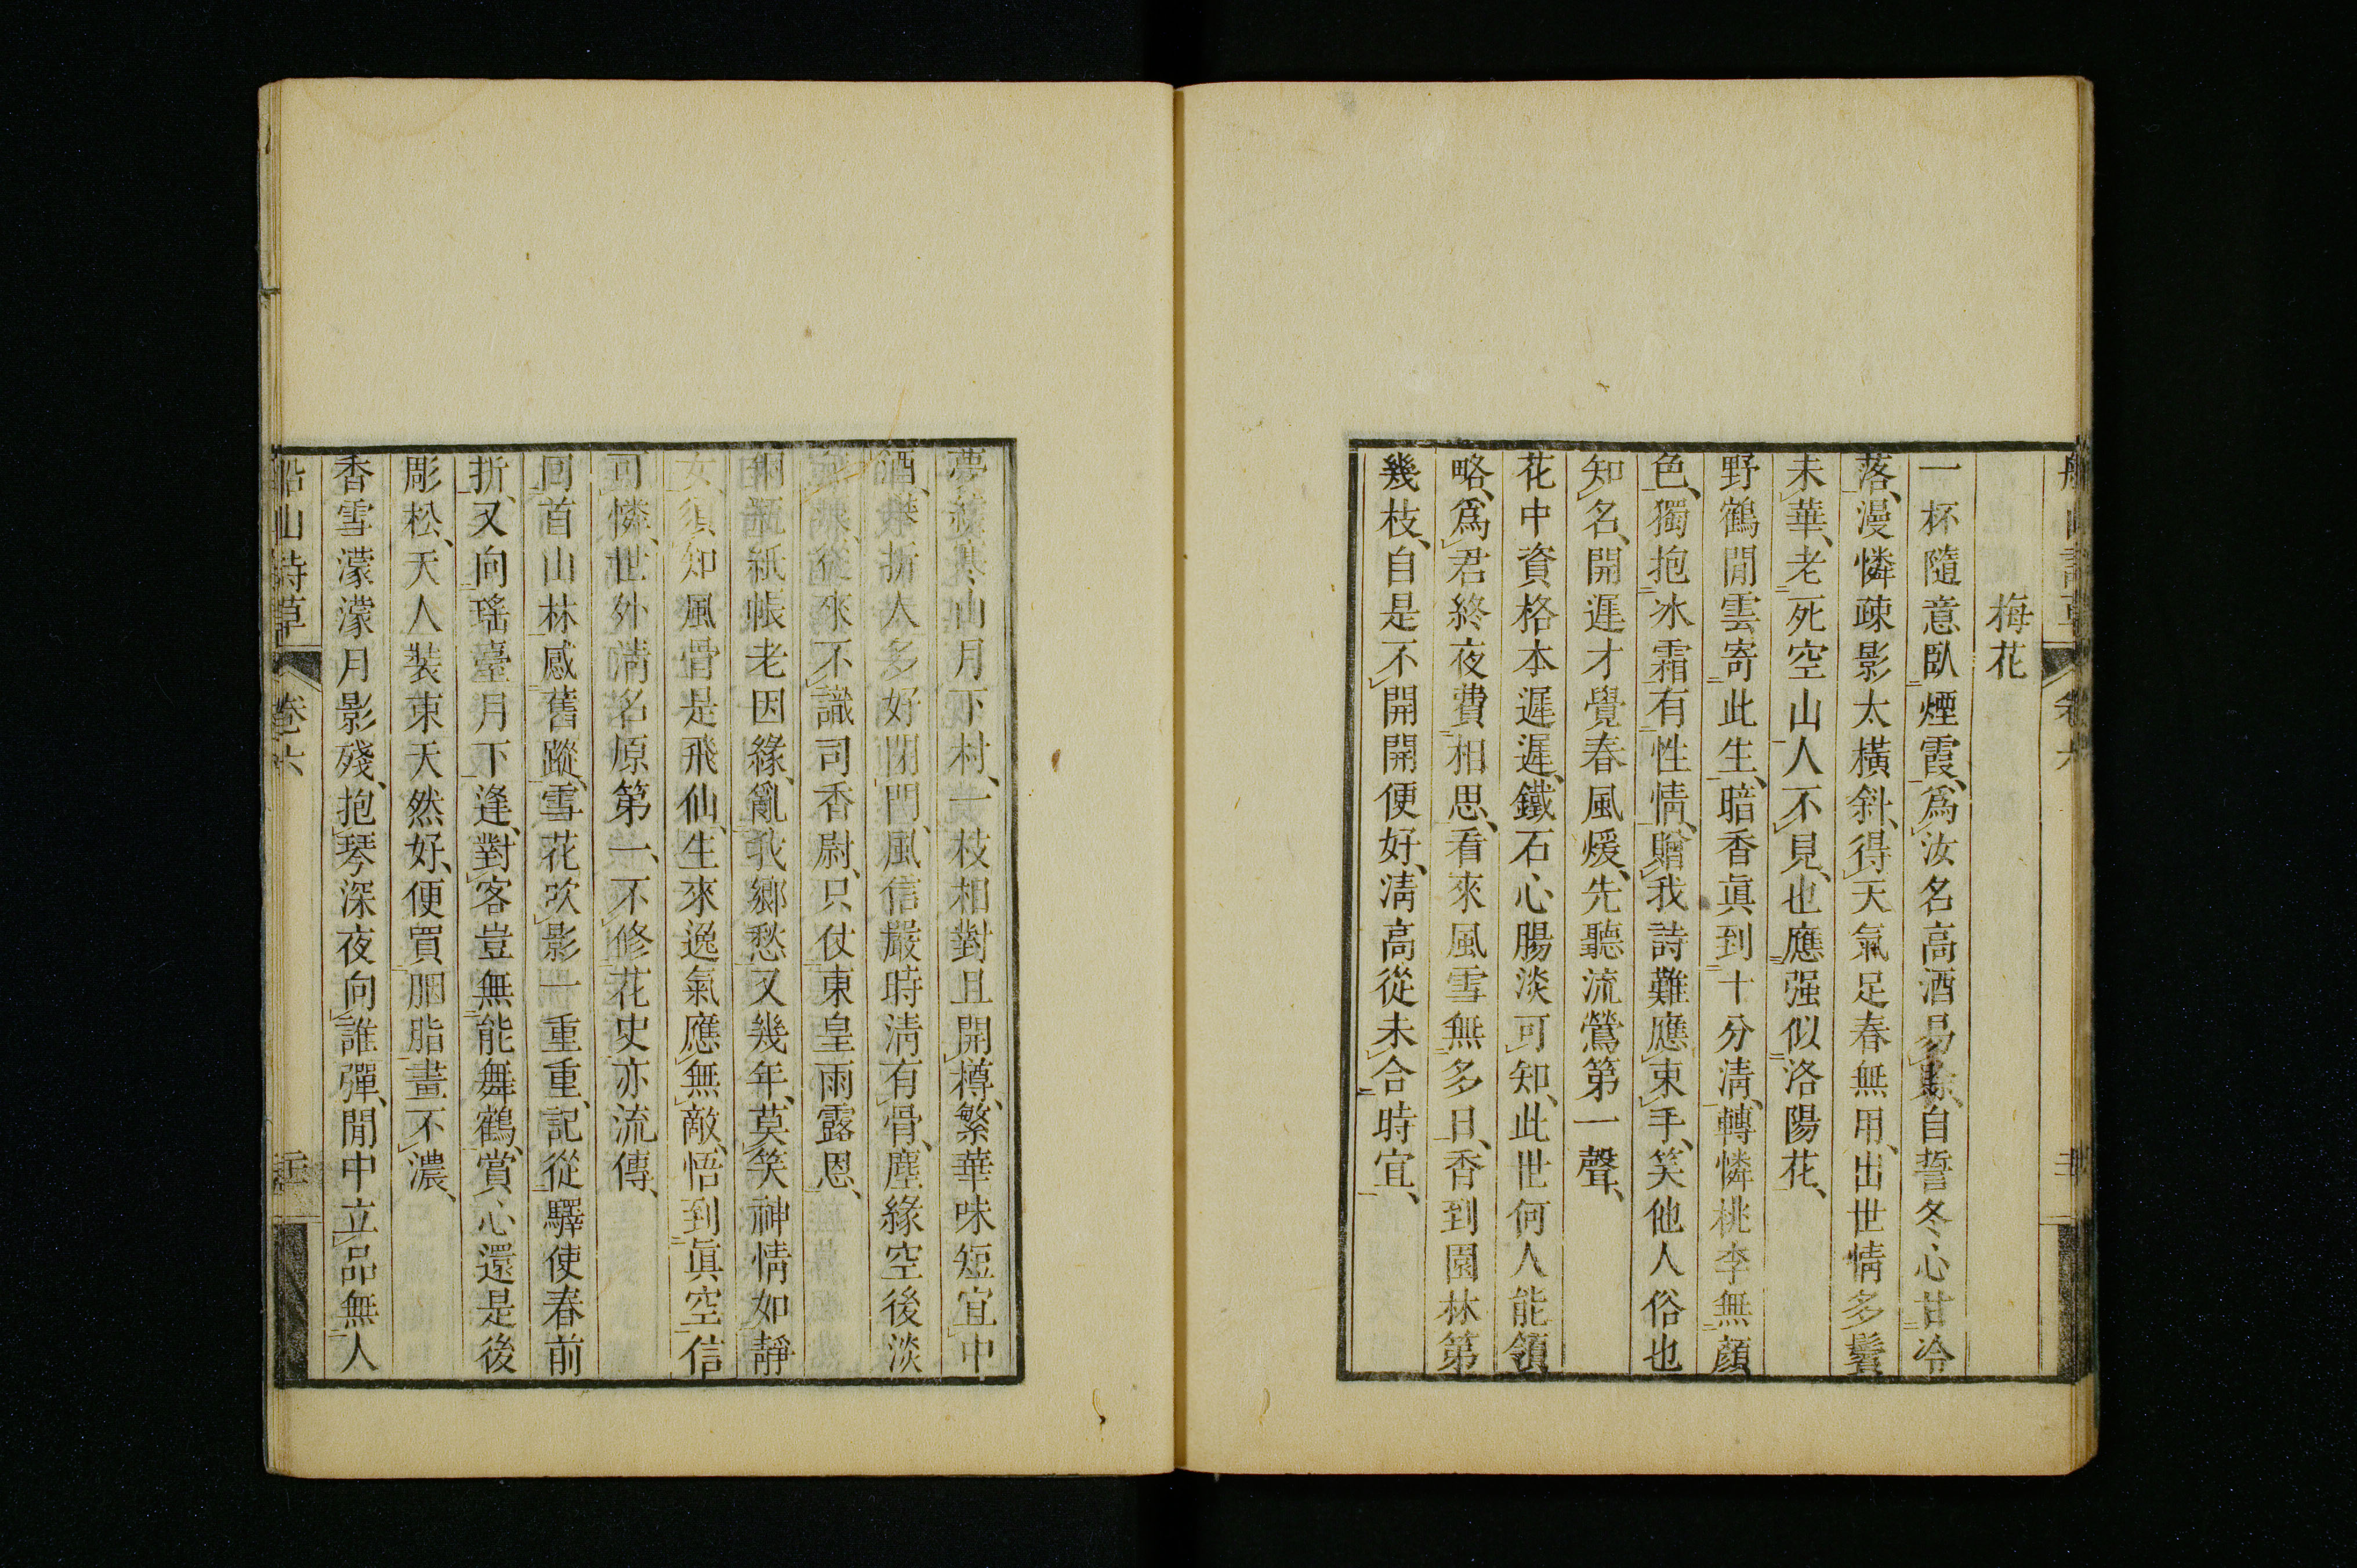 梅花
一杯隨意臥煙霞、爲汝名高酒易賒、自誓冬心甘冷
落、漫憐疎影太橫斜、得天氣足春無用、出世情多鬢
未華、老死空山人不見、也應强似洛陽花、
野鶴閒雲寄此生、暗香眞到十分淸、轉憐桃李無顏
色、獨抱冰霜有性情、贈我詩難應束手、笑他人俗也
知名、開遲才覺春風煖、先聽流鶯第一聲、
花中資格本遲遲、鐵石心腸淡可知、此世何人能領
略、爲君終夜費相思、看來風雪無多日、香到園林第
幾枝、自是不開開便好、淸高從未合時宜、
夢繞寒山月下村、一枝相對且開樽、繁華味短宜中
酒、攀折人多好閉門、風信嚴時淸有骨、塵緣空後淡
來不識司香尉、只仗東皇雨露恩、
銅瓶紙帳老因緣、亂我鄉愁又幾年、莫笑神情如靜
女、須知風骨是飛仙、生來逸氣應無敵、悟到眞空信
可憐、世外淸名原第一、不修花史亦流傳、
回首山林感舊蹤、雪花吹影一重重、記從驛使春前
折、又向瑤臺月下逢、對客豈無能舞鶴、賞心還是後
彫松、天人裝束天然好、便買胭脂畫不濃、
香雪濛濛月影殘、抱琴深夜向誰彈、閒中立品無人
船山詩草 卷六